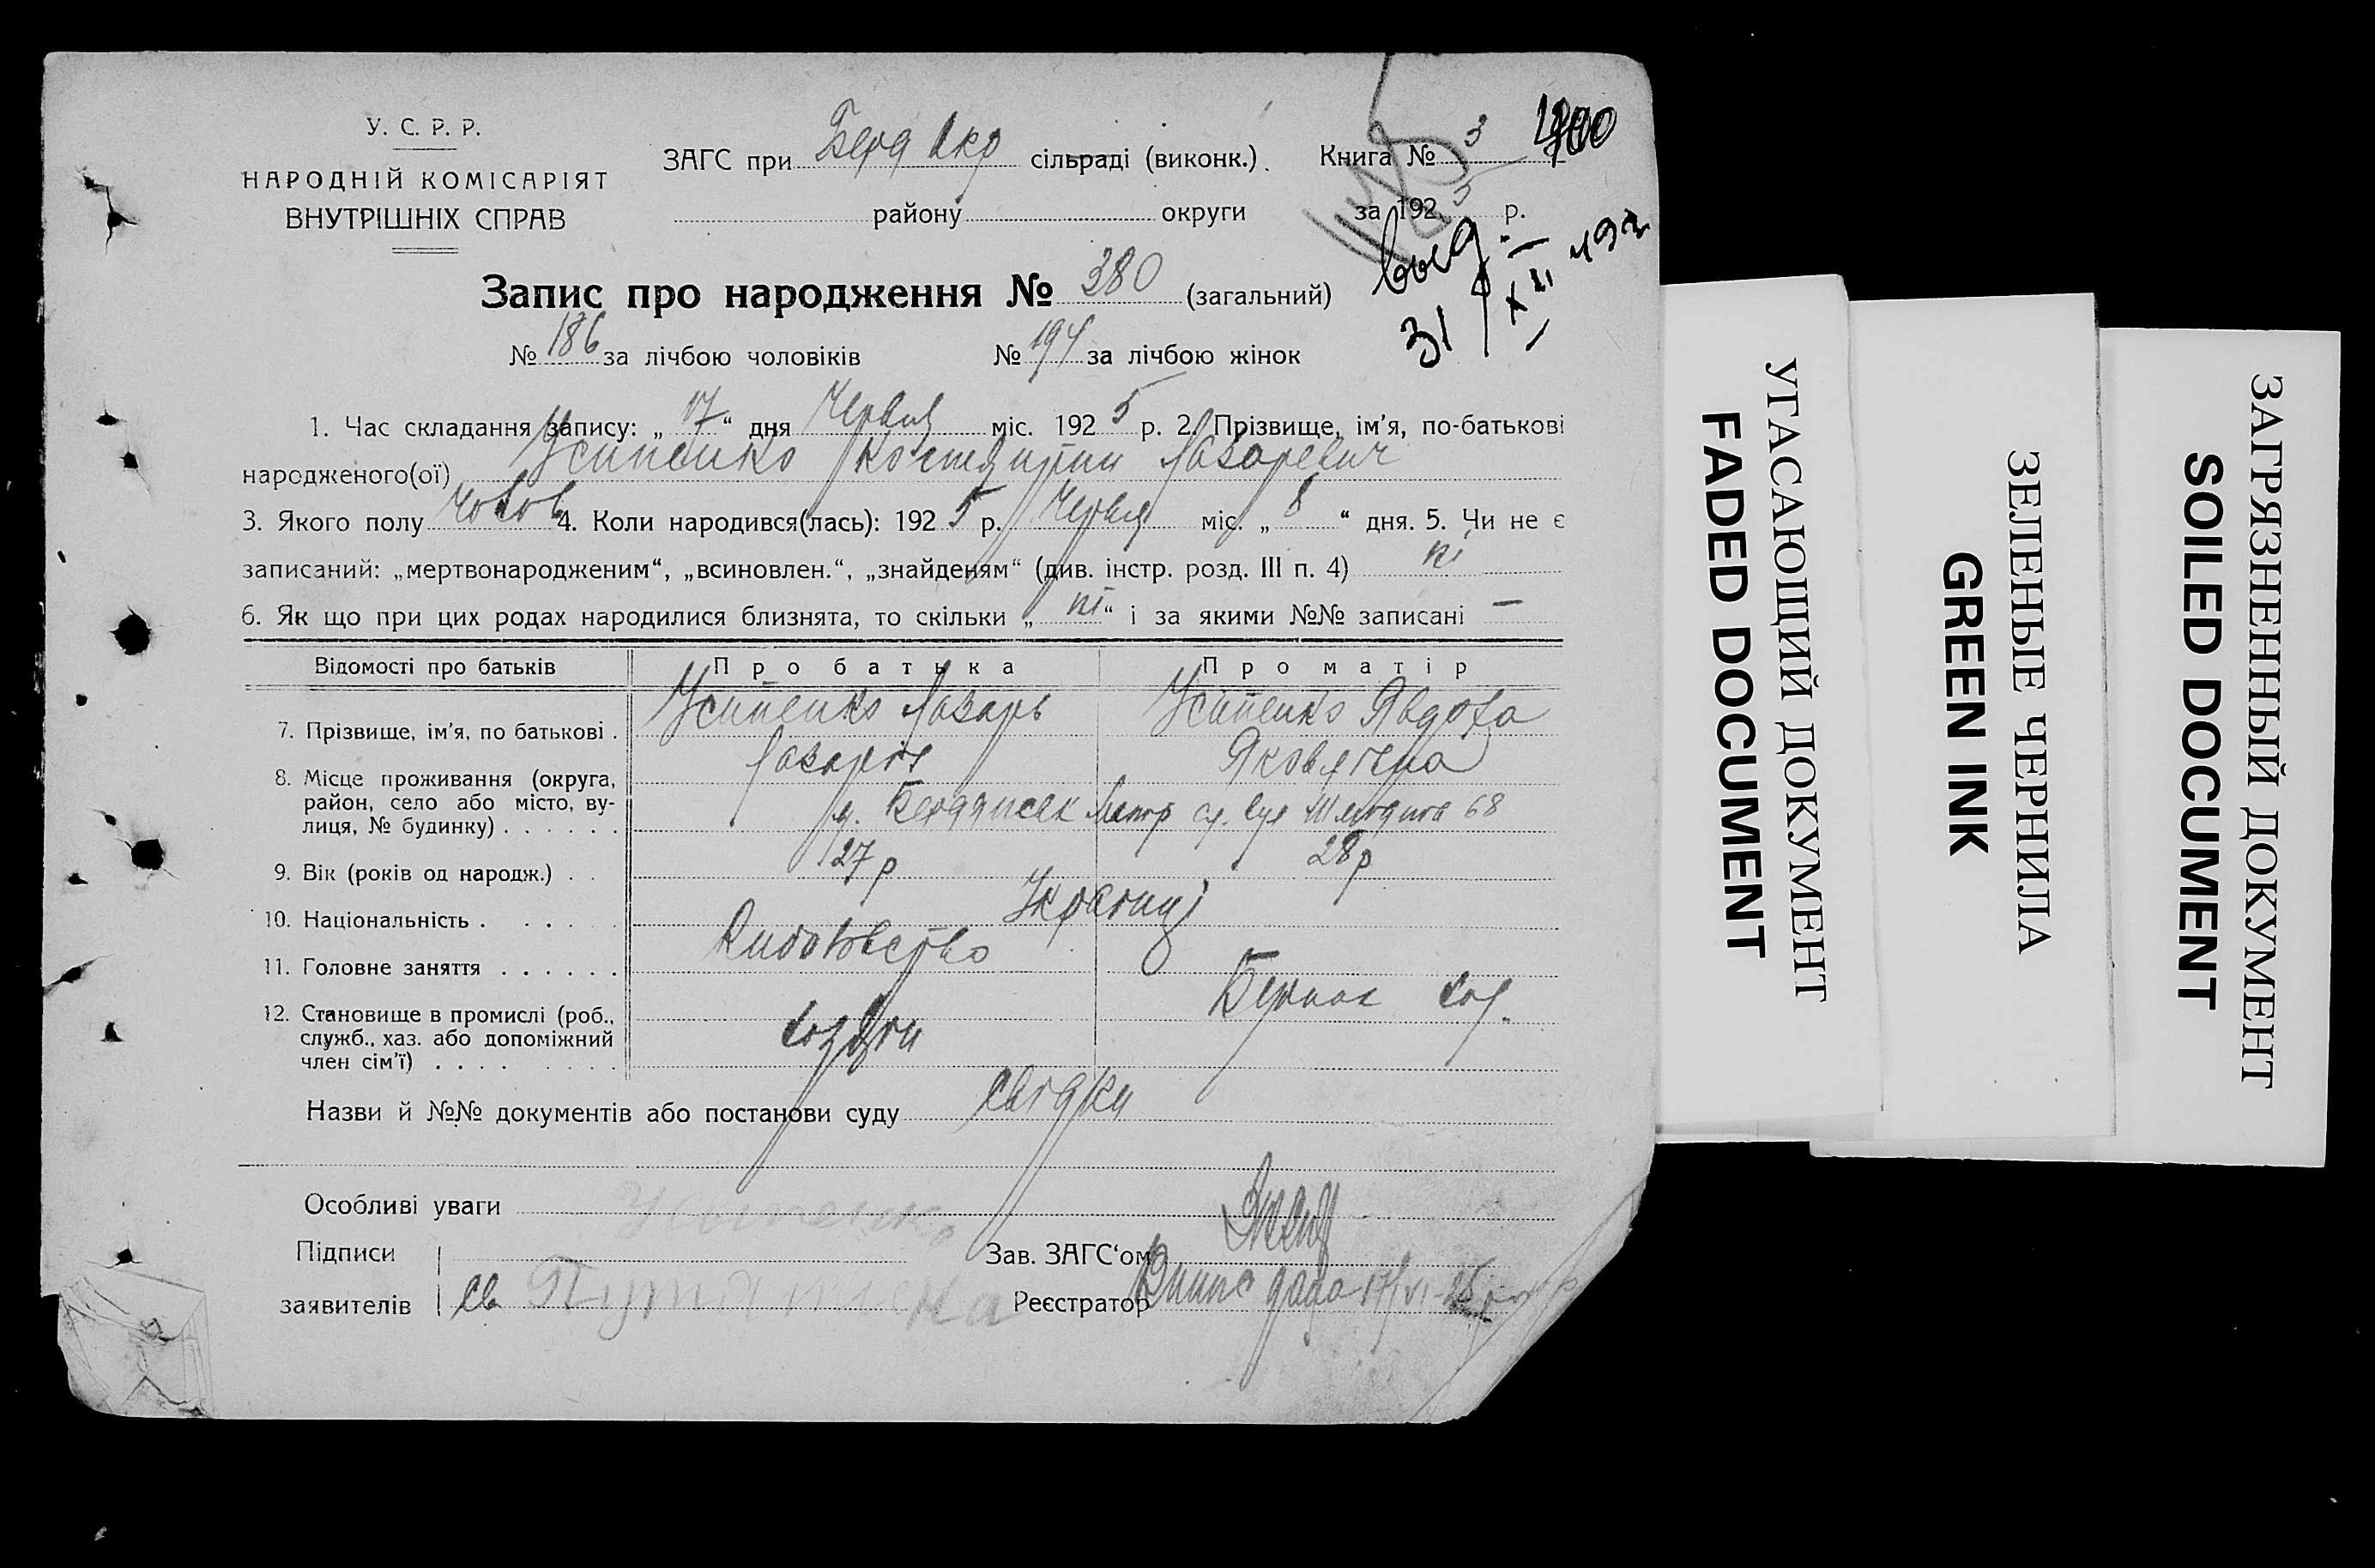 У. С. Р. Р.
НАРОДНІЙ КОМІСАРІЯТ
ВНУТРІШНІХ СПРАВ
ЗАГС при Берд Окр сільраді (виконк.).
району округи
Книга № 3
за 1925 р.
выд.
31 XII 192
Запис про народження № 380 (загальний)
№ 186 за лічбою чоловіків № 194 за лічбою жінок
1. Час складання запису: „17“ дня Червня міс. 1925 р. 2. Прізвище, ім'я, по-батькові
народженого(ої) Усипенко Костянтин Лазаревич
3. Якого полу Чолов 4. Коли народився(лась): 1925 р. Червня міс. „8“ дня. 5. Чи не є
записаний: „мертвонародженим“, „всиновлен.“, „знайденям“ (див. інстр. розд. III п. 4) ні
6. Як що при цих родах народилися близнята, то скільки „ні“ і за якими №№ записані —
Відомості про батьків Про батька Про матір
7. Прізвище, ім'я, по батькові . Усипенко Лазарь Усипенко Явдоха
Лазаров Яковлевна
8. Місце проживання (округа,
район, село або місто, ву-
лиця, № будинку) . . . . . . м. Бердянськ вул 68
9. Вік (років од народж.) . . 27 р 28 р
10. Національність . . . . . Українці
11. Головне заняття . . . . . .
12. Становище в промислі (роб.,
служб., хаз. або допоміжний
член сім'ї) . . . .
Назви й №№ документів або постанови суду свідки
Особливі уваги
Підписи Усыпенко Зав. ЗАГС'ом
заявителів св Реєстратор
УГАСАЮЩИЙ ДОКУМЕНТ
FADED DOCUMENT
ЗЕЛЕНЫЕ ЧЕРНИЛА
GREEN INK
ЗАГРЯЗНЕННЫЙ ДОКУМЕНТ
SOILED DOCUMENT